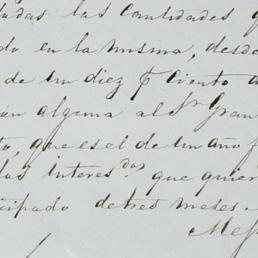 todas las cantidades q
do en la misma, desde
de un diez p Ciento a
ien alguna al Sr Gran
to, que es el de un año f
los interesdos que quier
cipado de tres meses.
Mef